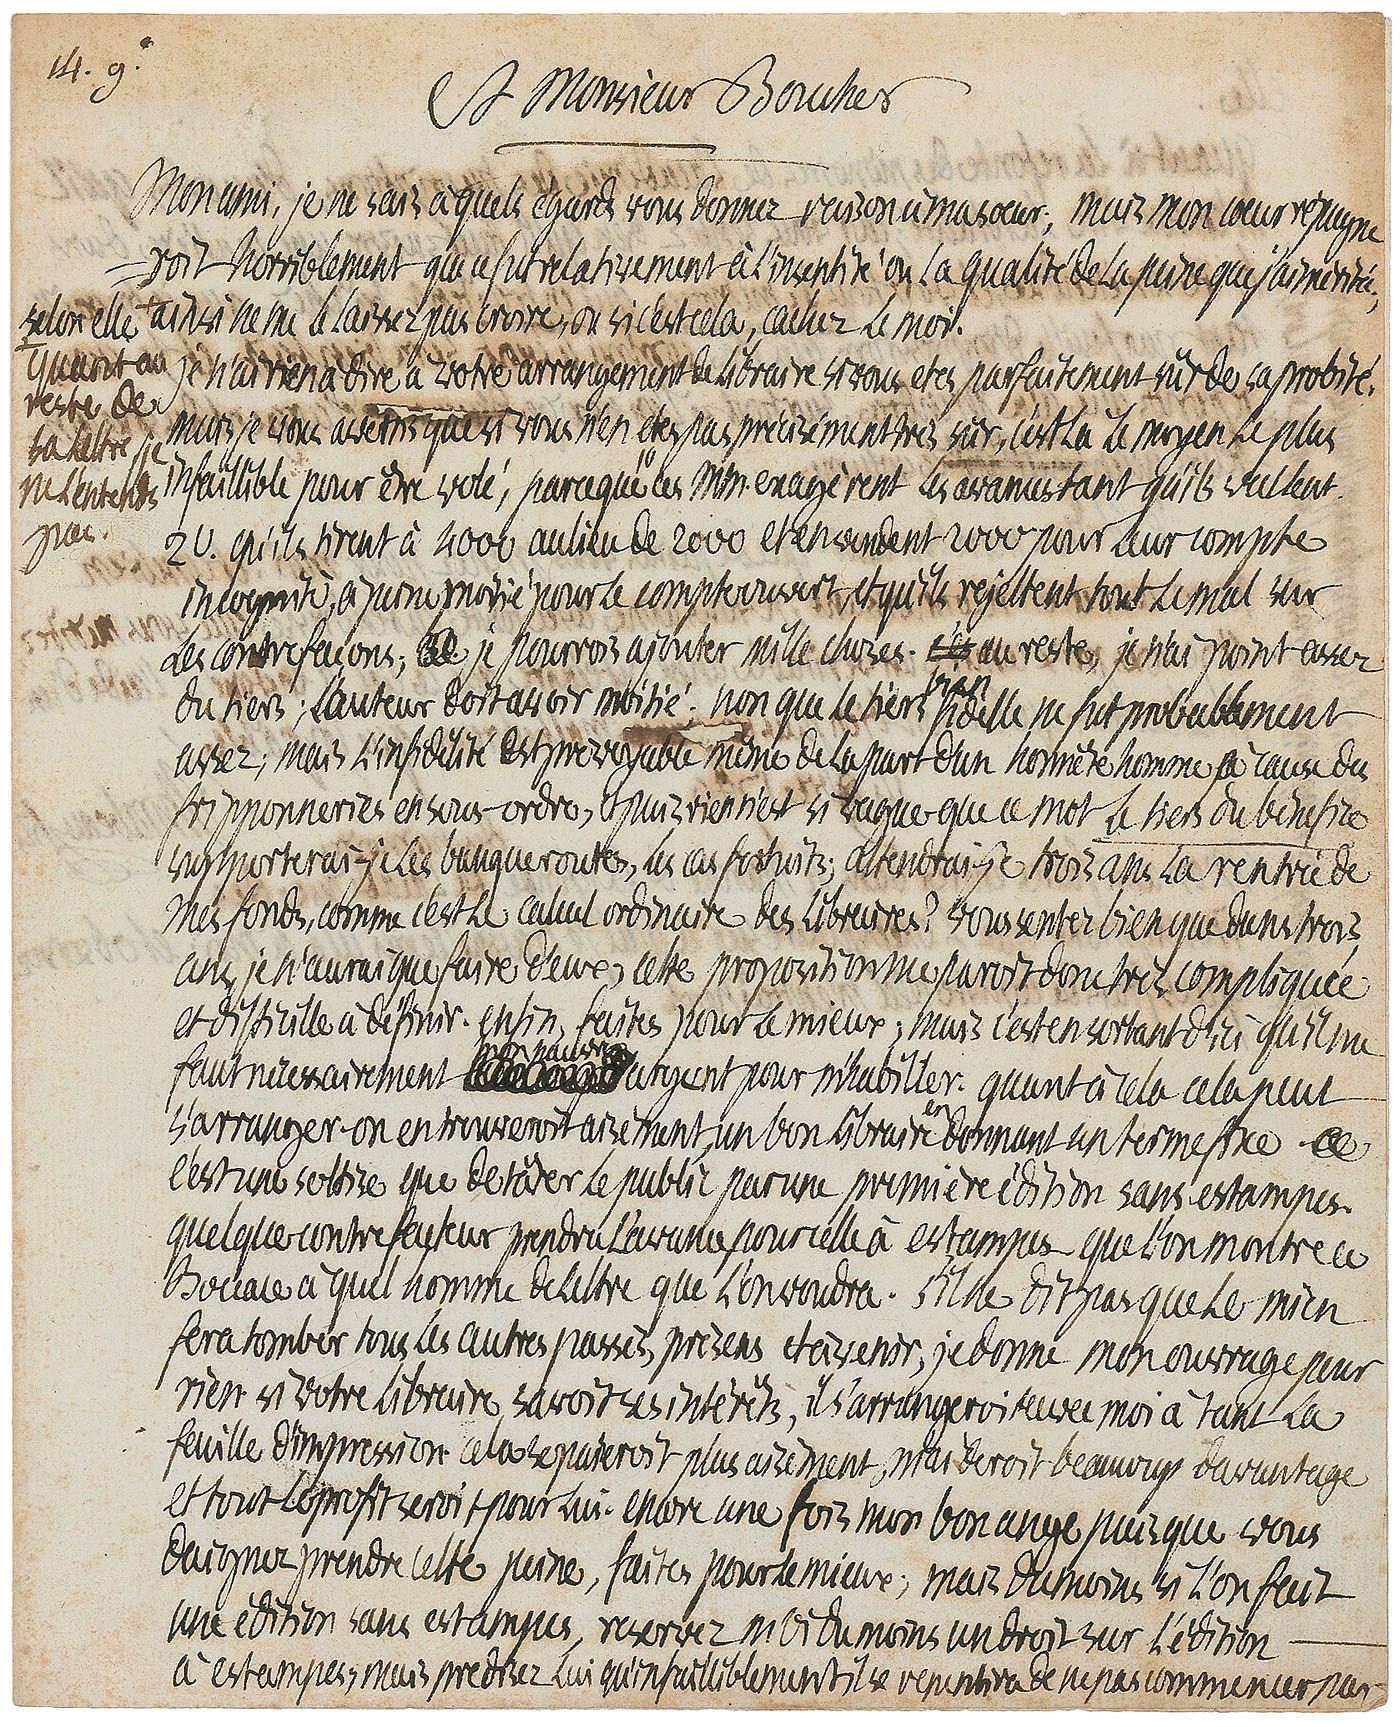 14. 9.e
A Monsieur Boucher
Mon ami, je ne sais à quels égards vous donnez raison à ma sœur; mais mon cœur répugne
roit horriblement que ce fut relativement à l'ineptité ou la qualité de la peine que j'ai méritée,
selon elle + ainsi ne me le laissez pas croire, ou si c'est cela, cachez le moi.
quant au
reste de
sa lettre je
ne l'entends
pas.
je n'ai rien à dire à votre arrangement de libraire si vous etes parfaitement sûr de sa probité.
mais je vous avertis que si vous n'en etes pas précisément très sûr, c'est là le moyen le plus
infaillible pour être volé, parceque 1º ces MM. exagèrent les avances tant qu'ils veulent.
2º. qu'ils tirent à 4000 au lieu de 2000 et en vendent 2000 pour leur compte
incognito, à peine moitié pour le compte ouvert, et qu'ils rejettent tout le mal sur
les contrefaçons; je pourrois ajouter mille choses. au reste, je n'ai point assez
du tiers; l'auteur doit avoir moitié; non que le tiers bien fidelle ne fut probablement
assez; mais l'infidélité est prevoyable même de la part d'un honnête homme à cause des
fripponneries en sous-ordre, et puis rien n'est si vague que ce mot le tiers du bénéfice
supporterai-je les banqueroutes, les cas fortuits; attendrai-je trois ans la rentrée de
mes fonds, comme c'est le calcul ordinaire des libraires? vous sentez bien que dans trois
ans, je n'aurai que faire d'eux; cette proposition me paroit donc très compliquée
et difficille à définir. enfin, faites pour le mieux; mais c'est en sortant d'ici qu'il me
faut nécessairement mon pauvre argent pour m'habiller. quant à cela cela peut
s'arranger. on en trouveroit aisément, un bon libraire en donnant un terme fixe
c'est une sottise que de tâter le public par une première édition sans estampes.
quelque contrefacteur prendra l'avance pour celle à estampes que l'on montre ce
Bocace à quel homme de lettre que l'on voudra. S'il ne dit pas que le mien
fera tomber tous les autres passés, présens et avenir, je donne mon ouvrage pour
rien. si votre libraire savoit ses intérêts, il s'arrangeroit avec moi à tant la
feuille d'impression. cela se paieroit plus aisément, m'aideroit beaucoup davantage
et tout le profit seroit pour lui. encore une fois mon bon ange puisque vous
daignez prendre cette peine, faites pour le mieux; mais du moins si l'on fait
une édition sans estampes, reservez moi du moins un droit sur l'édition
à estampes; mais prédisez lui qu'infailliblement il se repentira de ne pas commencer par